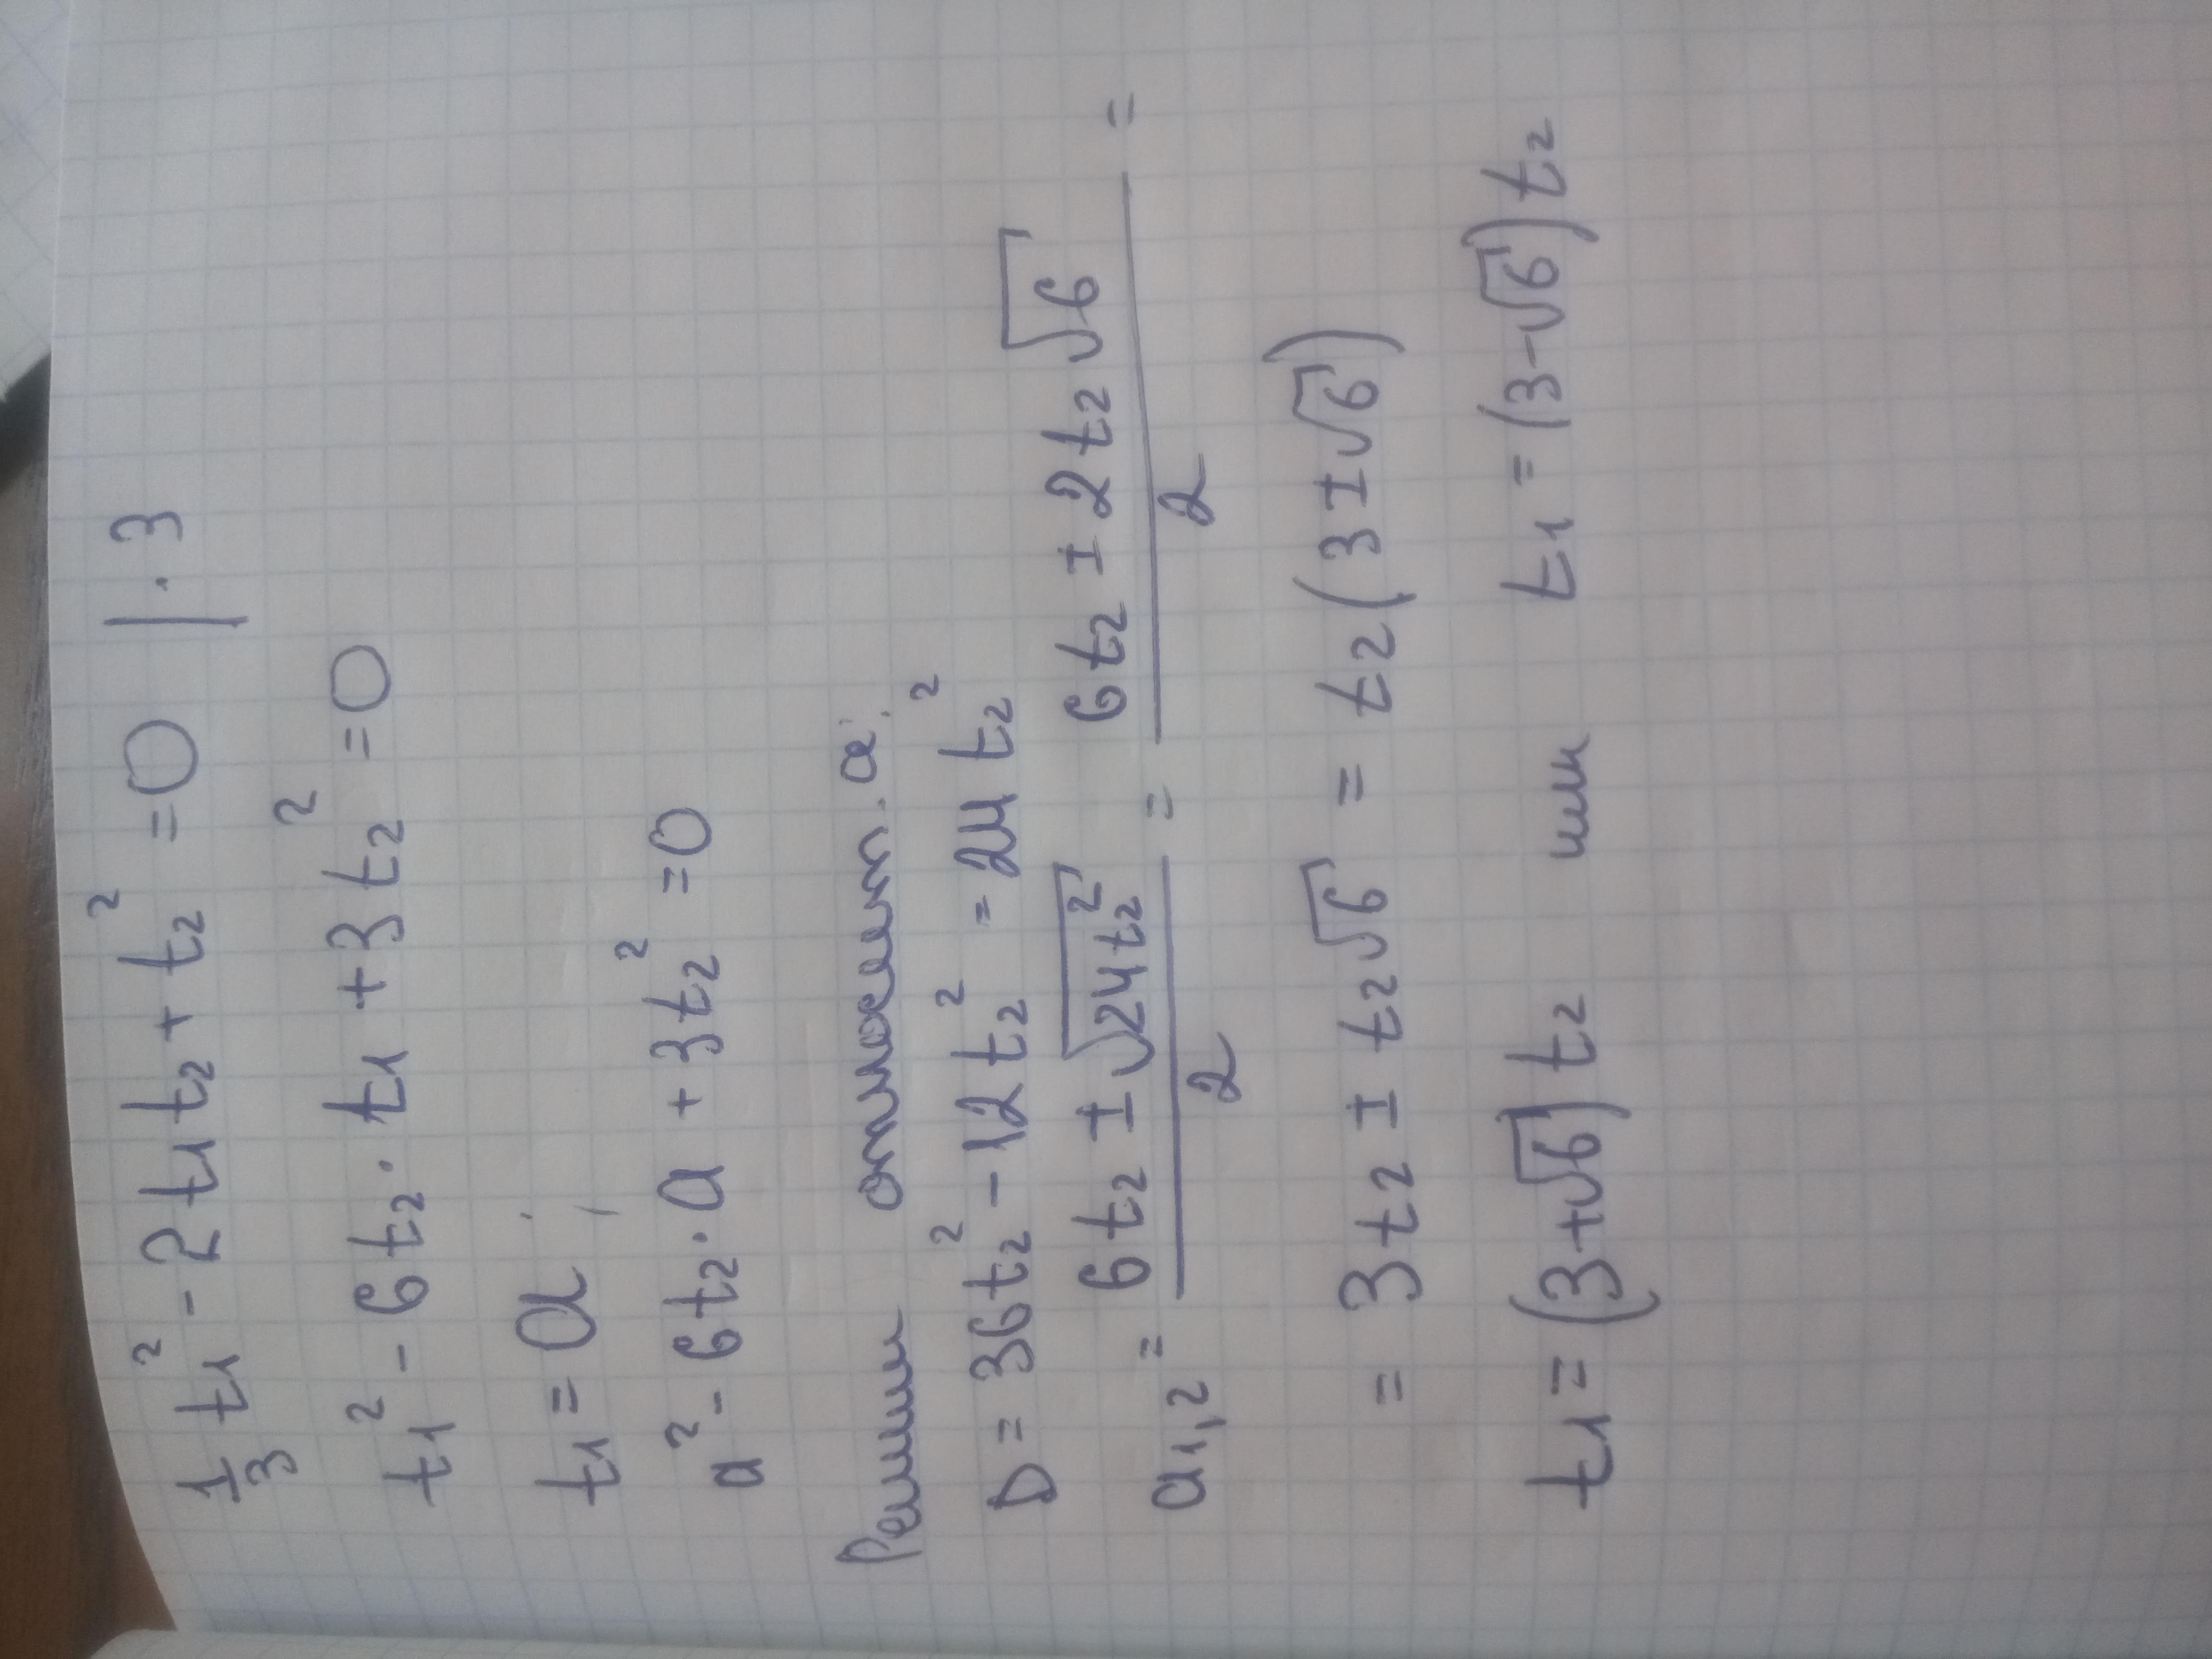 1/3 t₁² - 2t₁t₂ + t₂² = 0 | · 3
t₁² - 6t₂ · t₁ + 3t₂² = 0
t₁ = a
a² - 6t₂ · a + 3t₂² = 0
Решим относит. a:
D = 36t₂² - 12t₂² = 24t₂²
a₁,₂ = (6t₂ ± √(24t₂²))/2 = (6t₂ ± 2t₂√6)/2 =
= 3t₂ ± t₂√6 = t₂(3 ± √6)
t₁ = (3+√6)t₂ или t₁ = (3-√6)t₂